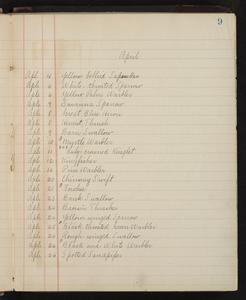 9
April
Apl. 4 Yellow bellied Sapsucker
Apl. 4 White throated Sparrow
Apl. 6 Yellow Palm Warbler
Apl. 7 Savanna Sparrow
Apl. 8 Great Blue Heron
Apl. 8 Hermit Thrush
Apl. 9 Barn Swallow
Apl. 10 Myrtle Warbler
Apl. 11 Ruby crowned Kinglet
Apl. 12 Kingfisher
Apl. 14 Pine Warbler
Apl. 20 Chimney Swift
Apl. 21
Apl. 23 Bank Swallow
Apl. 23 Brown Thrasher
Apl. 24 Yellow winged Sparrow
Apl. 25 Black throated Green Warbler
Apl. 25 Rough winged Swallow
Apl. 26 Black and White Warbler
Apl. 26 Spotted Sandpiper